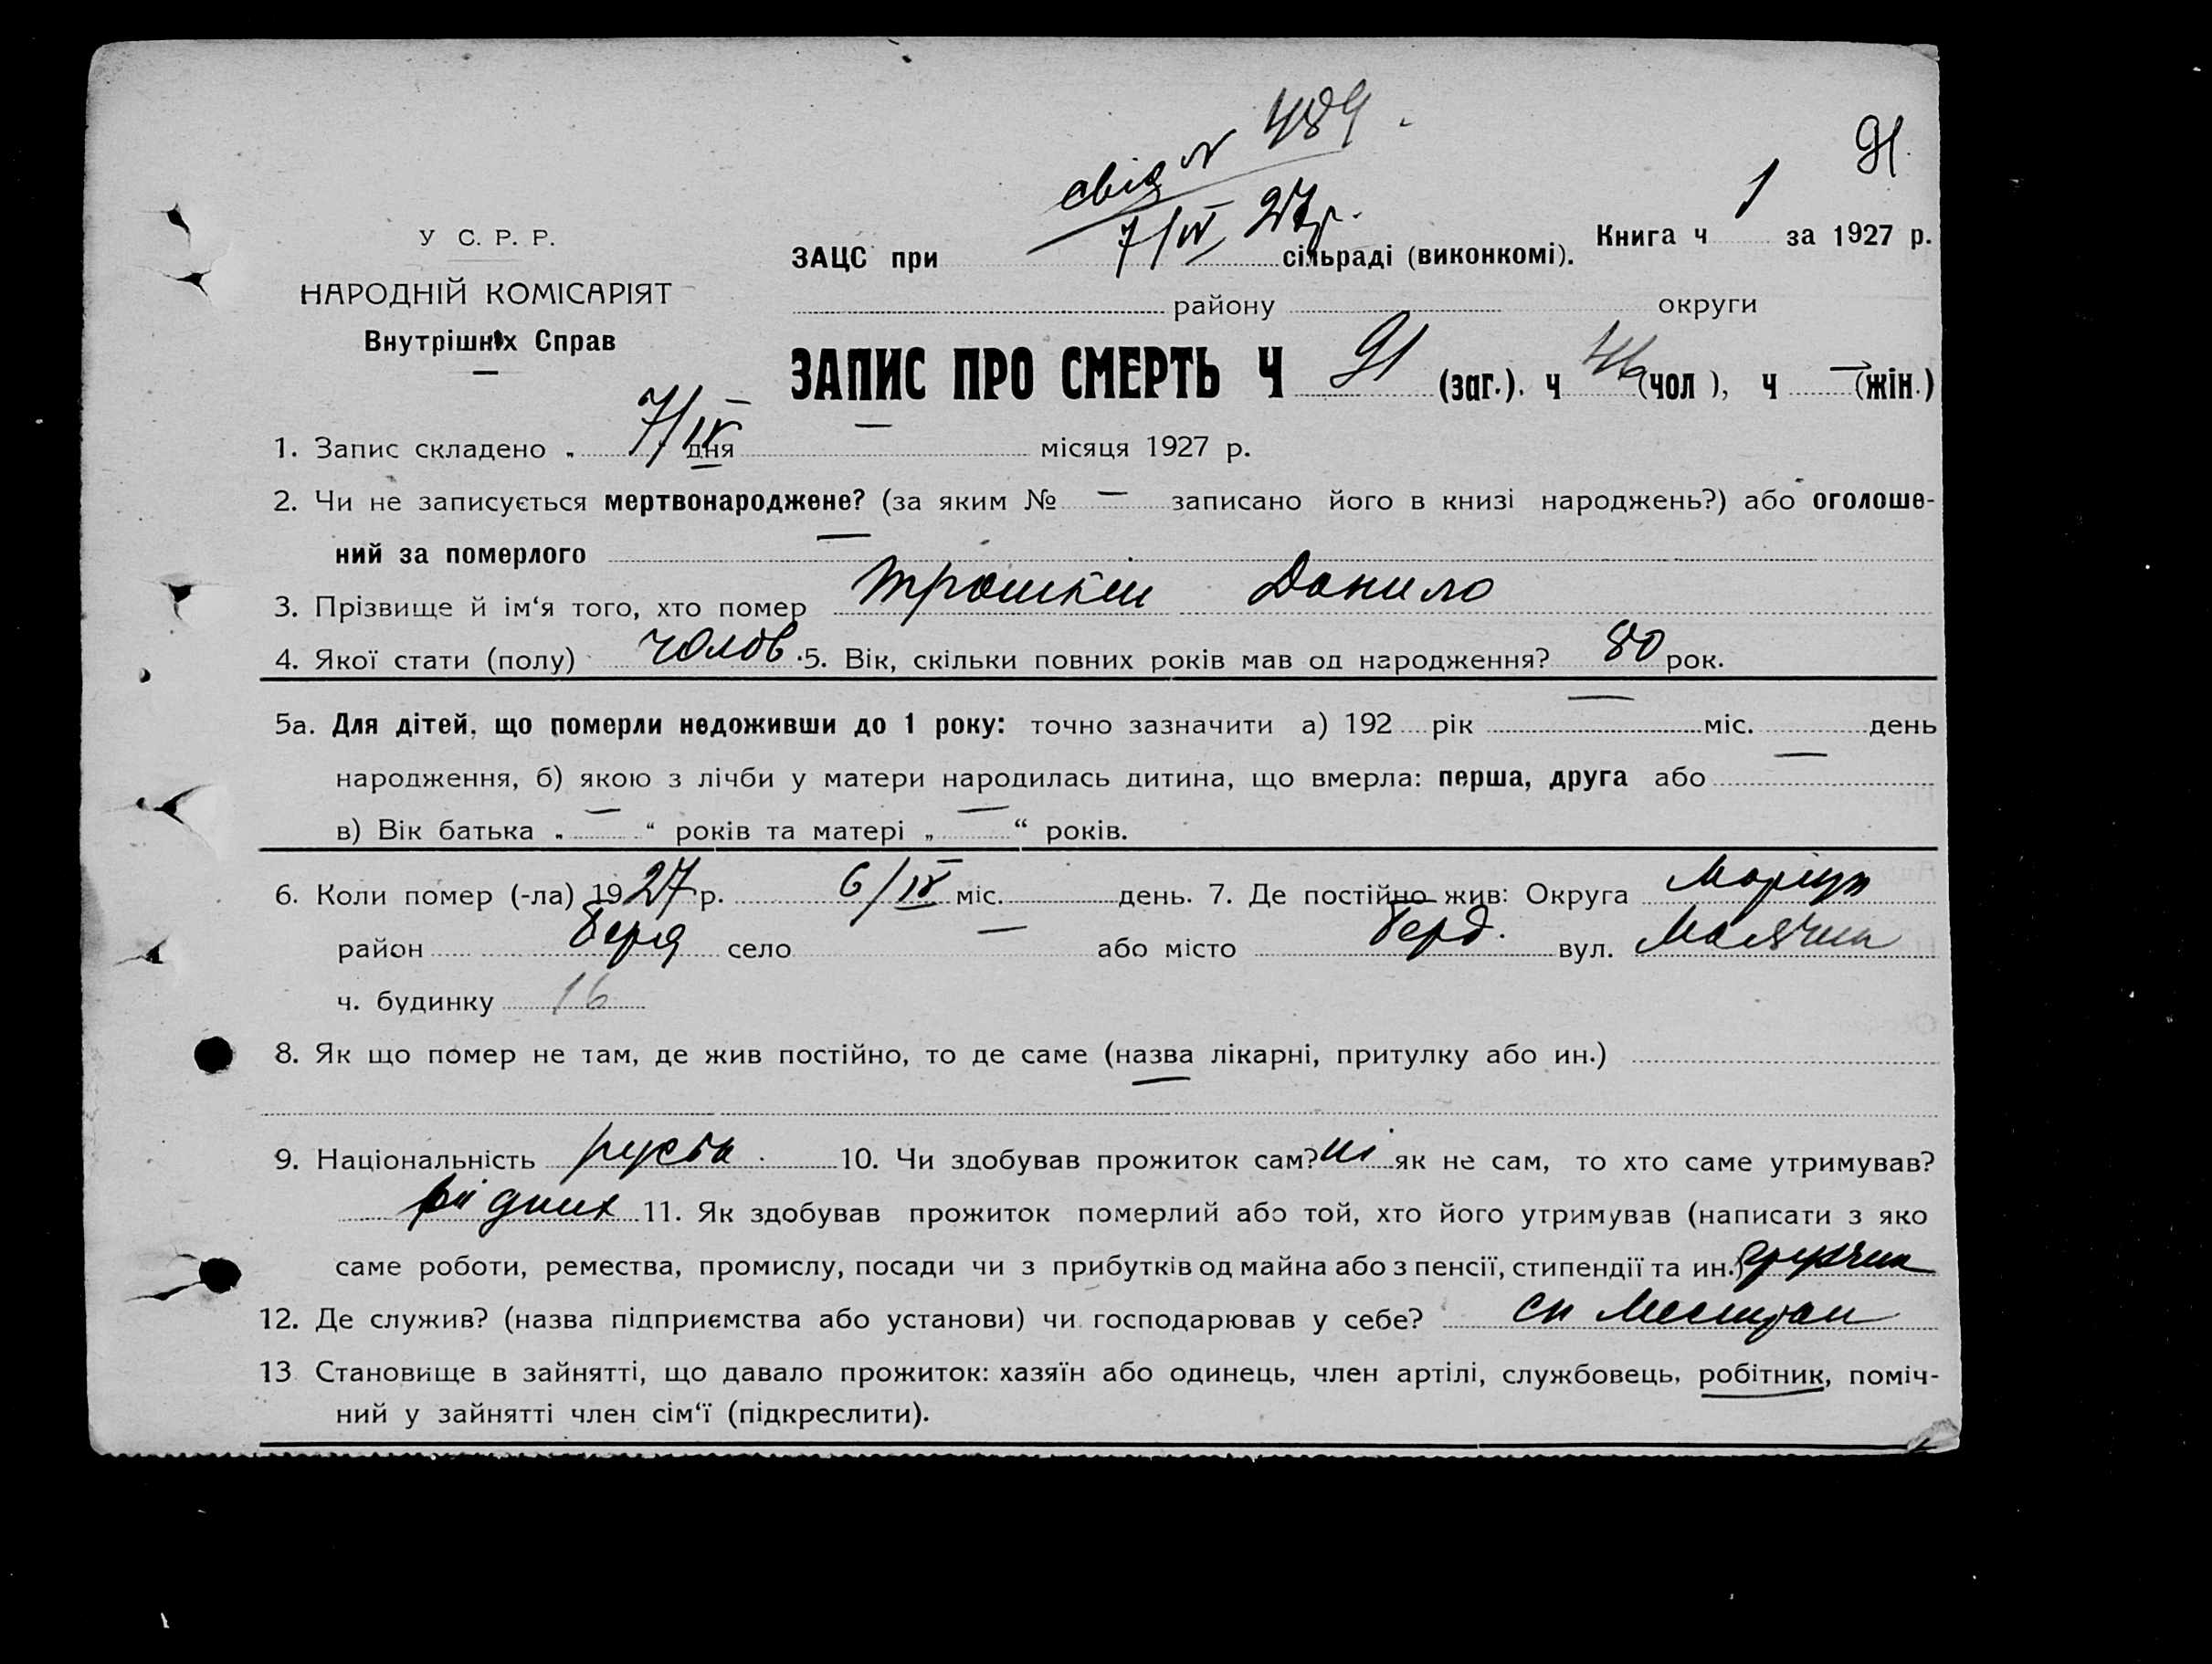 свід N 484
91
7/IV 27р.
У С. Р. Р.
НАРОДНІЙ КОМІСАРІЯТ
Внутрішніх Справ
ЗАЦС при сільраді (виконкомі). Книга ч 1 за 1927 р.
району округи
ЗАПИС ПРО СМЕРТЬ Ч 91 (заг.). ч 46 (чол ), ч — (жін.)
1. Запис складено „ 7/IV “ дня — місяця 1927 р.
2. Чи не записується мертвонароджене? (за яким № — записано його в книзі народжень?) або оголоше-
ний за померлого —
3. Прізвище й ім‘я того, хто помер Трошкін Данило
4. Якої стати (полу) чолов. 5. Вік, скільки повних років мав од народження? 80 рок.
5а. Для дітей, що померли недоживши до 1 року: точно зазначити а) 192 рік — міс. день
народження, б) якою з лічби у матери народилась дитина, що вмерла: перша, друга або —
в) Вік батька „ — “ років та матері „ — “ років.
6. Коли помер (-ла) 1927 р. 6/IV міс. день. 7. Де постійно жив: Округа Маріуп
район Берд село — або місто Берд. вул.
ч. будинку 16
8. Як що помер не там, де жив постійно, то де саме (назва лікарні, притулку або ин.)
—
9. Національність руська. 10. Чи здобував прожиток сам? ні як не сам, то хто саме утримував?
рідних 11. Як здобував прожиток померлий або той, хто його утримував (написати з яко
саме роботи, ремества, промислу, посади чи з прибутків од майна або з пенсії, стипендії та ин.)
12. Де служив? (назва підприємства або установи) чи господарював у себе?
13 Становище в зайнятті, що давало прожиток: хазяїн або одинець, член артілі, службовець, робітник, поміч-
ний у зайнятті член сім‘ї (підкреслити).